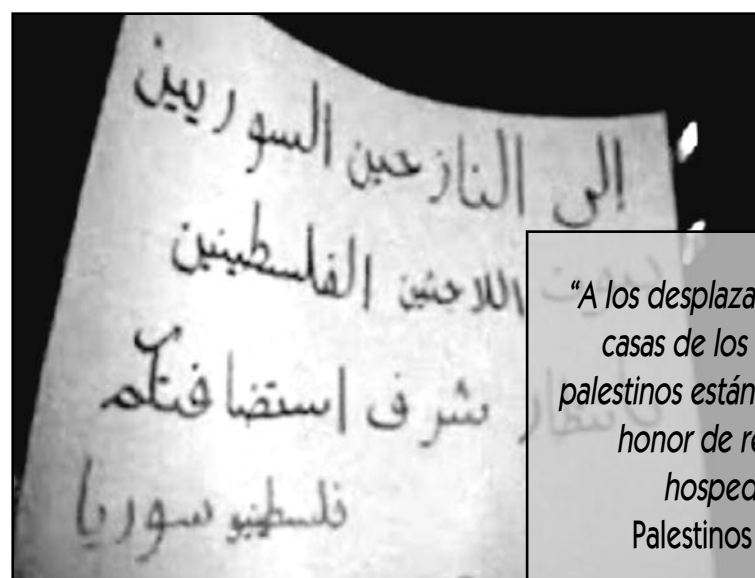 إلى النازحين السوريين
بيوت اللاجئين الفلسطينين
بانتظار شرف إستضافتكم
فلسطينيو سوريا
“A los desplaza
casas de los
palestinos están
honor de re
hosped
Palestinos